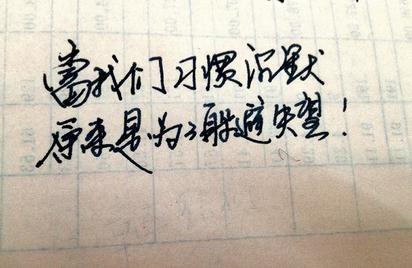 當我们习惯沉默
原来是为了躲避失望！